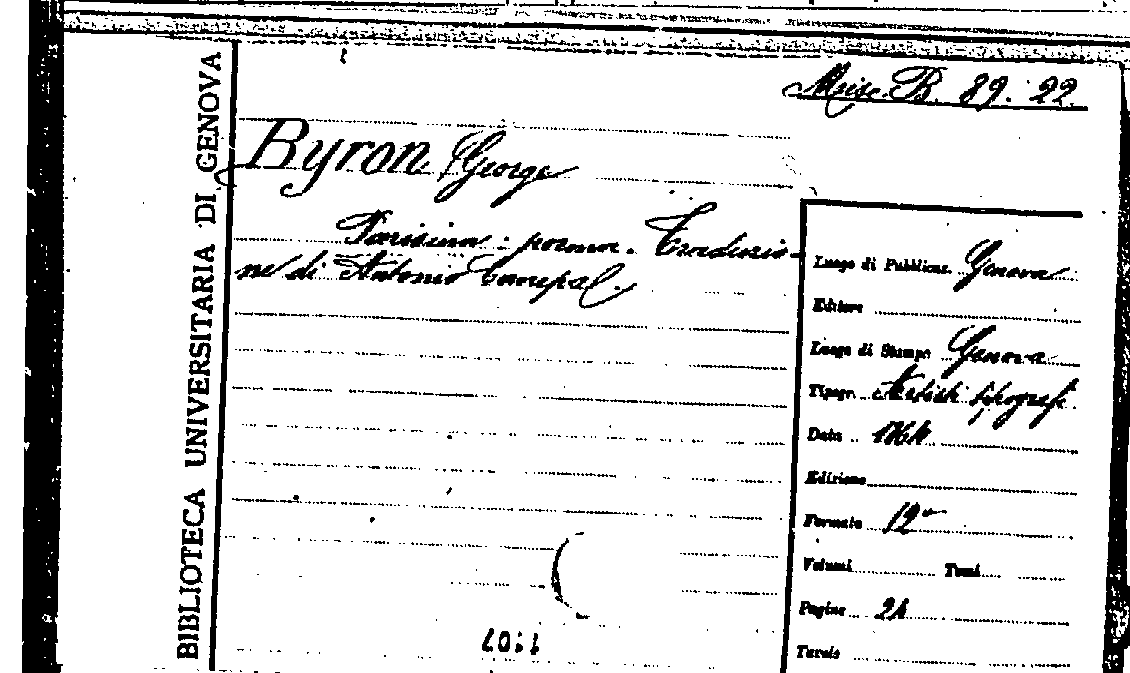 Misc. B. 89. 22.
BIBLIOTECA UNIVERSITARIA DI GENOVA
Byron George
Parisina: poema. Traduzio-
ne di Antonio Canepa.
Luogo di Pubblicaz. Genova
Editore
Luogo di Stampa Genova
Tipogr. Artisti tipografi.
Data
Edizione
Formato
Volumi Tomi
Pagine
Tavole